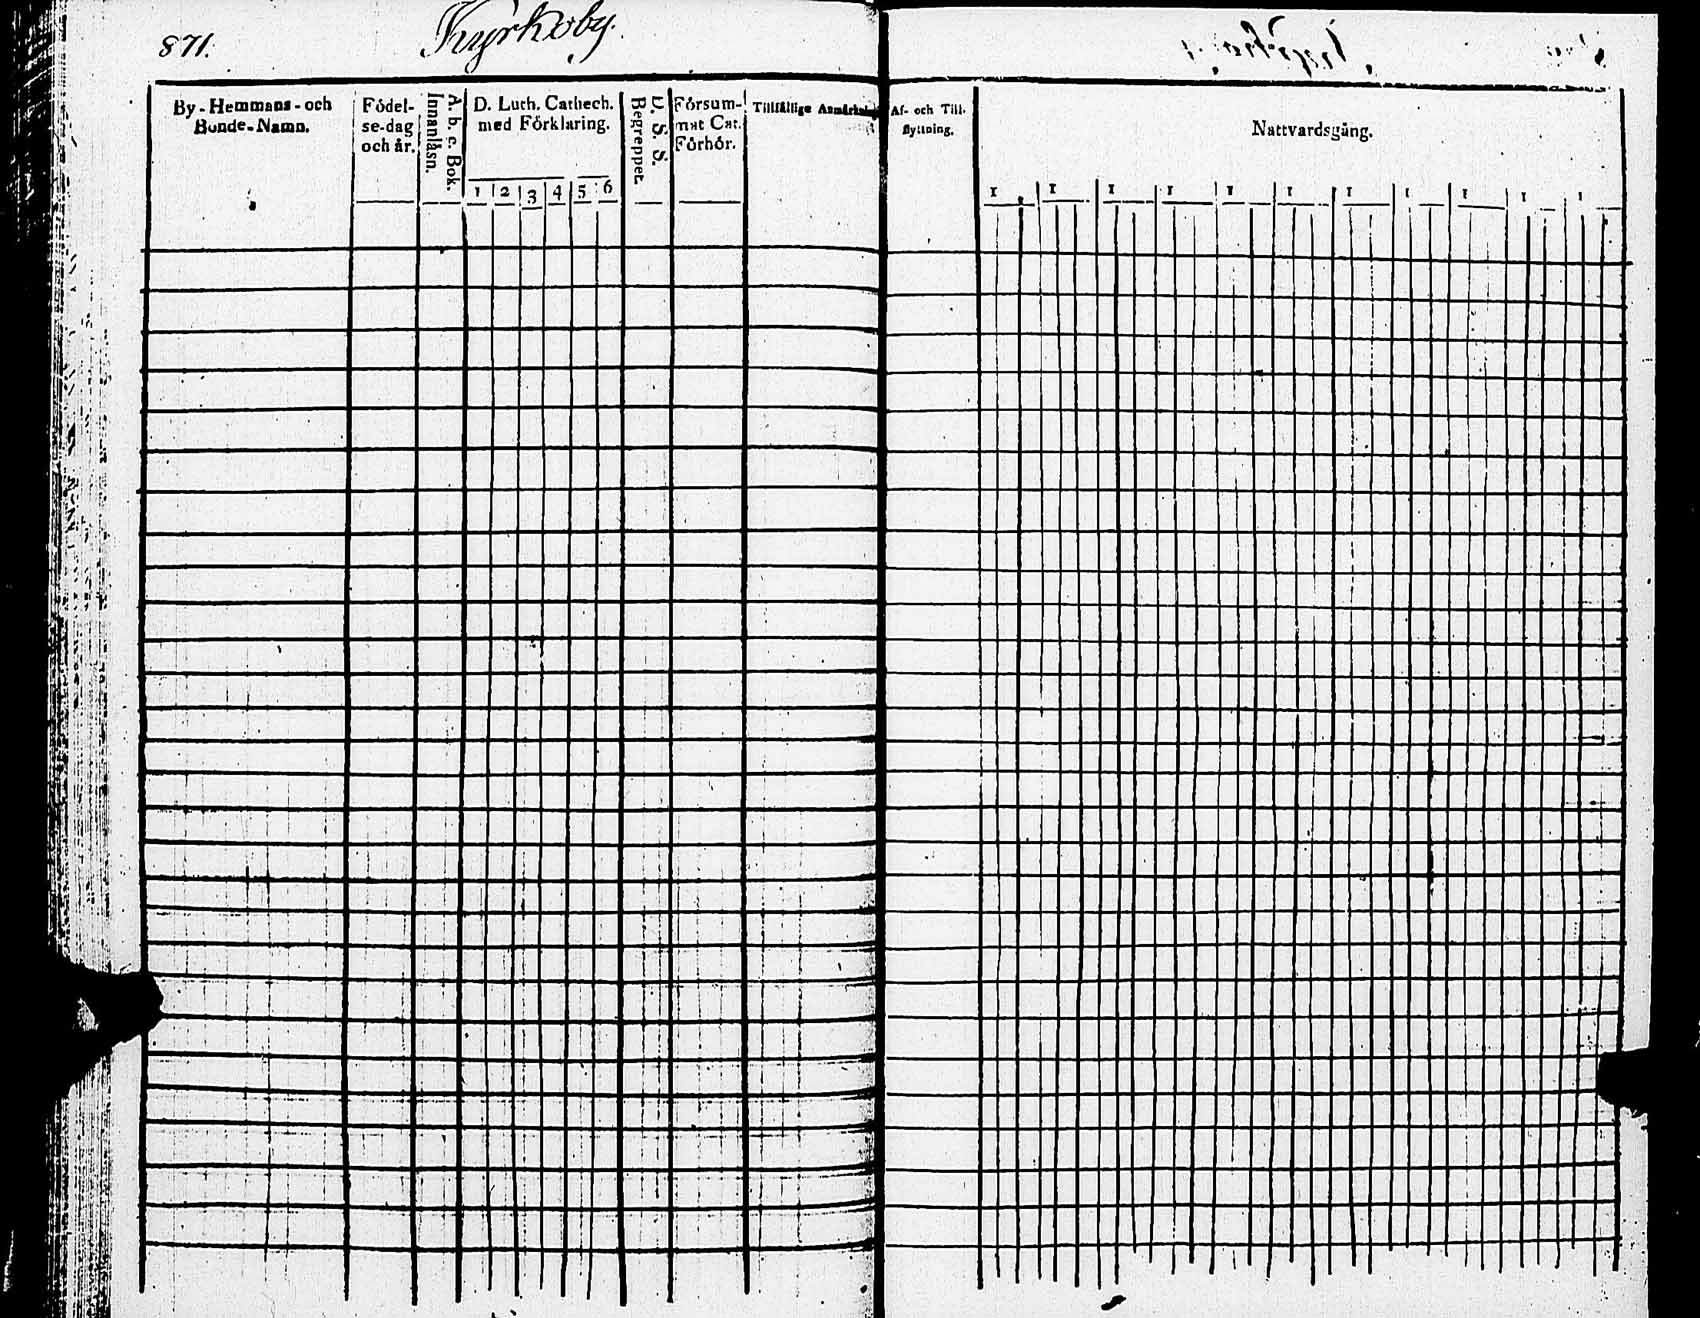 871. Kyrkoby.
By-Hemmans-och
Bonde-Namn.
Födel-
se-dag
och år.
A. b. c. Bok.
Innanläsn.
D. Luth. Cathech.
med Förklaring.
1 2 3 4 5 6
D. S. S.
Begreppet.
Försum-
mat Cat.
Förhör.
Tillfällige Anmärkn
Af- och Till-
flyttning.
Nattvardsgång.
1 1 1 1 1 1 1 1 1 1 1